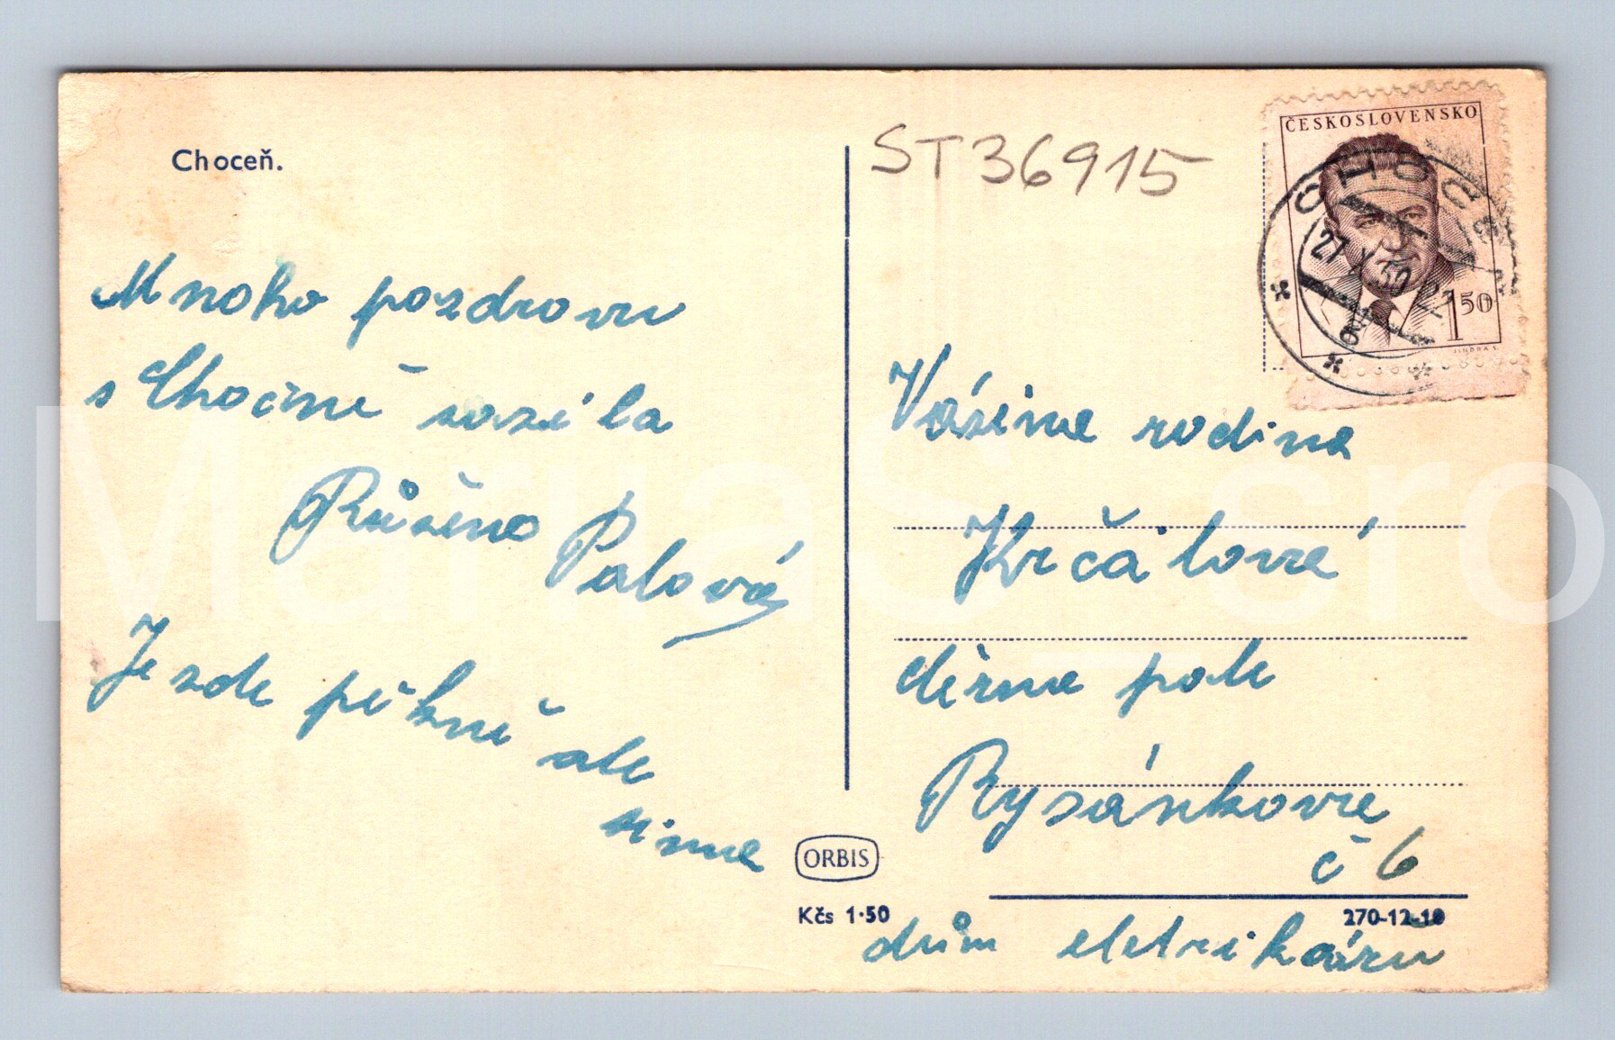 Choceň.
ST36915
ČESKOSLOVENSKO
CHOCEŇ
27.X.50
1 50
Mnoho pozdravu
s Chocině zasila
Růžena Palová
Je zde pěkně ale
zima
Vážena rodina
Krčálová
černe pole
Rysánkova
č 6
dům eletrikáru
ORBIS
Kčs 1·50
270-12-10